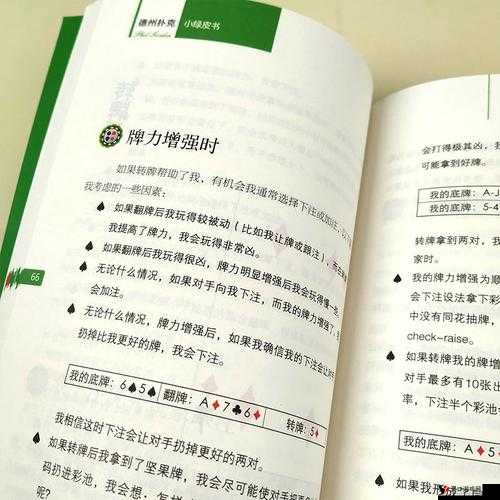 德州扑克 小绿皮书
Phil Gordon
牌力增强时
如果转牌帮助了我，有机会我通常选择下注或加注，以下
我考虑的一些因素：
♠ 如果翻牌后我玩得较被动（比如我让牌或跟注），
我提高了牌力，我会玩得非常凶。
♠ 如果翻牌后我玩得很凶，牌力明显增强后我会玩得慢一
♠ 无论什么情况，如果对手向我下注，而我的牌力增强了，
会加注。
♠ 无论什么情况，牌力增强后，如果我确信我的下注会让对手
扔掉比我更好的牌，我会下注。
我的底牌：6♠5♠ 翻牌：A♦7♣6♦ 转牌：5♦
我相信这时下注会让对手扔掉更好的两对。
♠ 如果转牌后我拿到了坚果牌，我会尽可能使对手把更
码扔进彩池，我会想，怎样
呢？
66
会打得极其凶，我
可能拿到好牌。
我的底牌：A-J
我的底牌：5-4
转牌拿到两对，我
家时。
♠ 我的牌力增强为顺
会下注设法拿下彩
中没有同花抽牌，
check-raise。
♠ 如果转牌我的牌增
对手最多有10张出
率，下注半个彩池
我的底牌：A♦5
♠ 如果我形成了